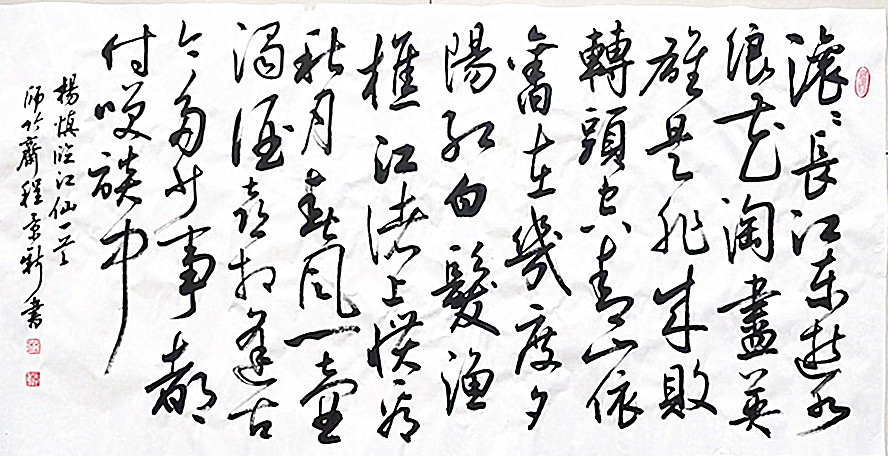 滾滾長江東逝水
浪花淘盡英
雄是非成敗
轉頭空青山依
舊在幾度夕
陽紅白髮漁
樵江渚上慣看
秋月春風一壺
濁酒喜相逢古
今多少事都
付笑談中
楊慎臨江仙一首
師竹齋程景新書